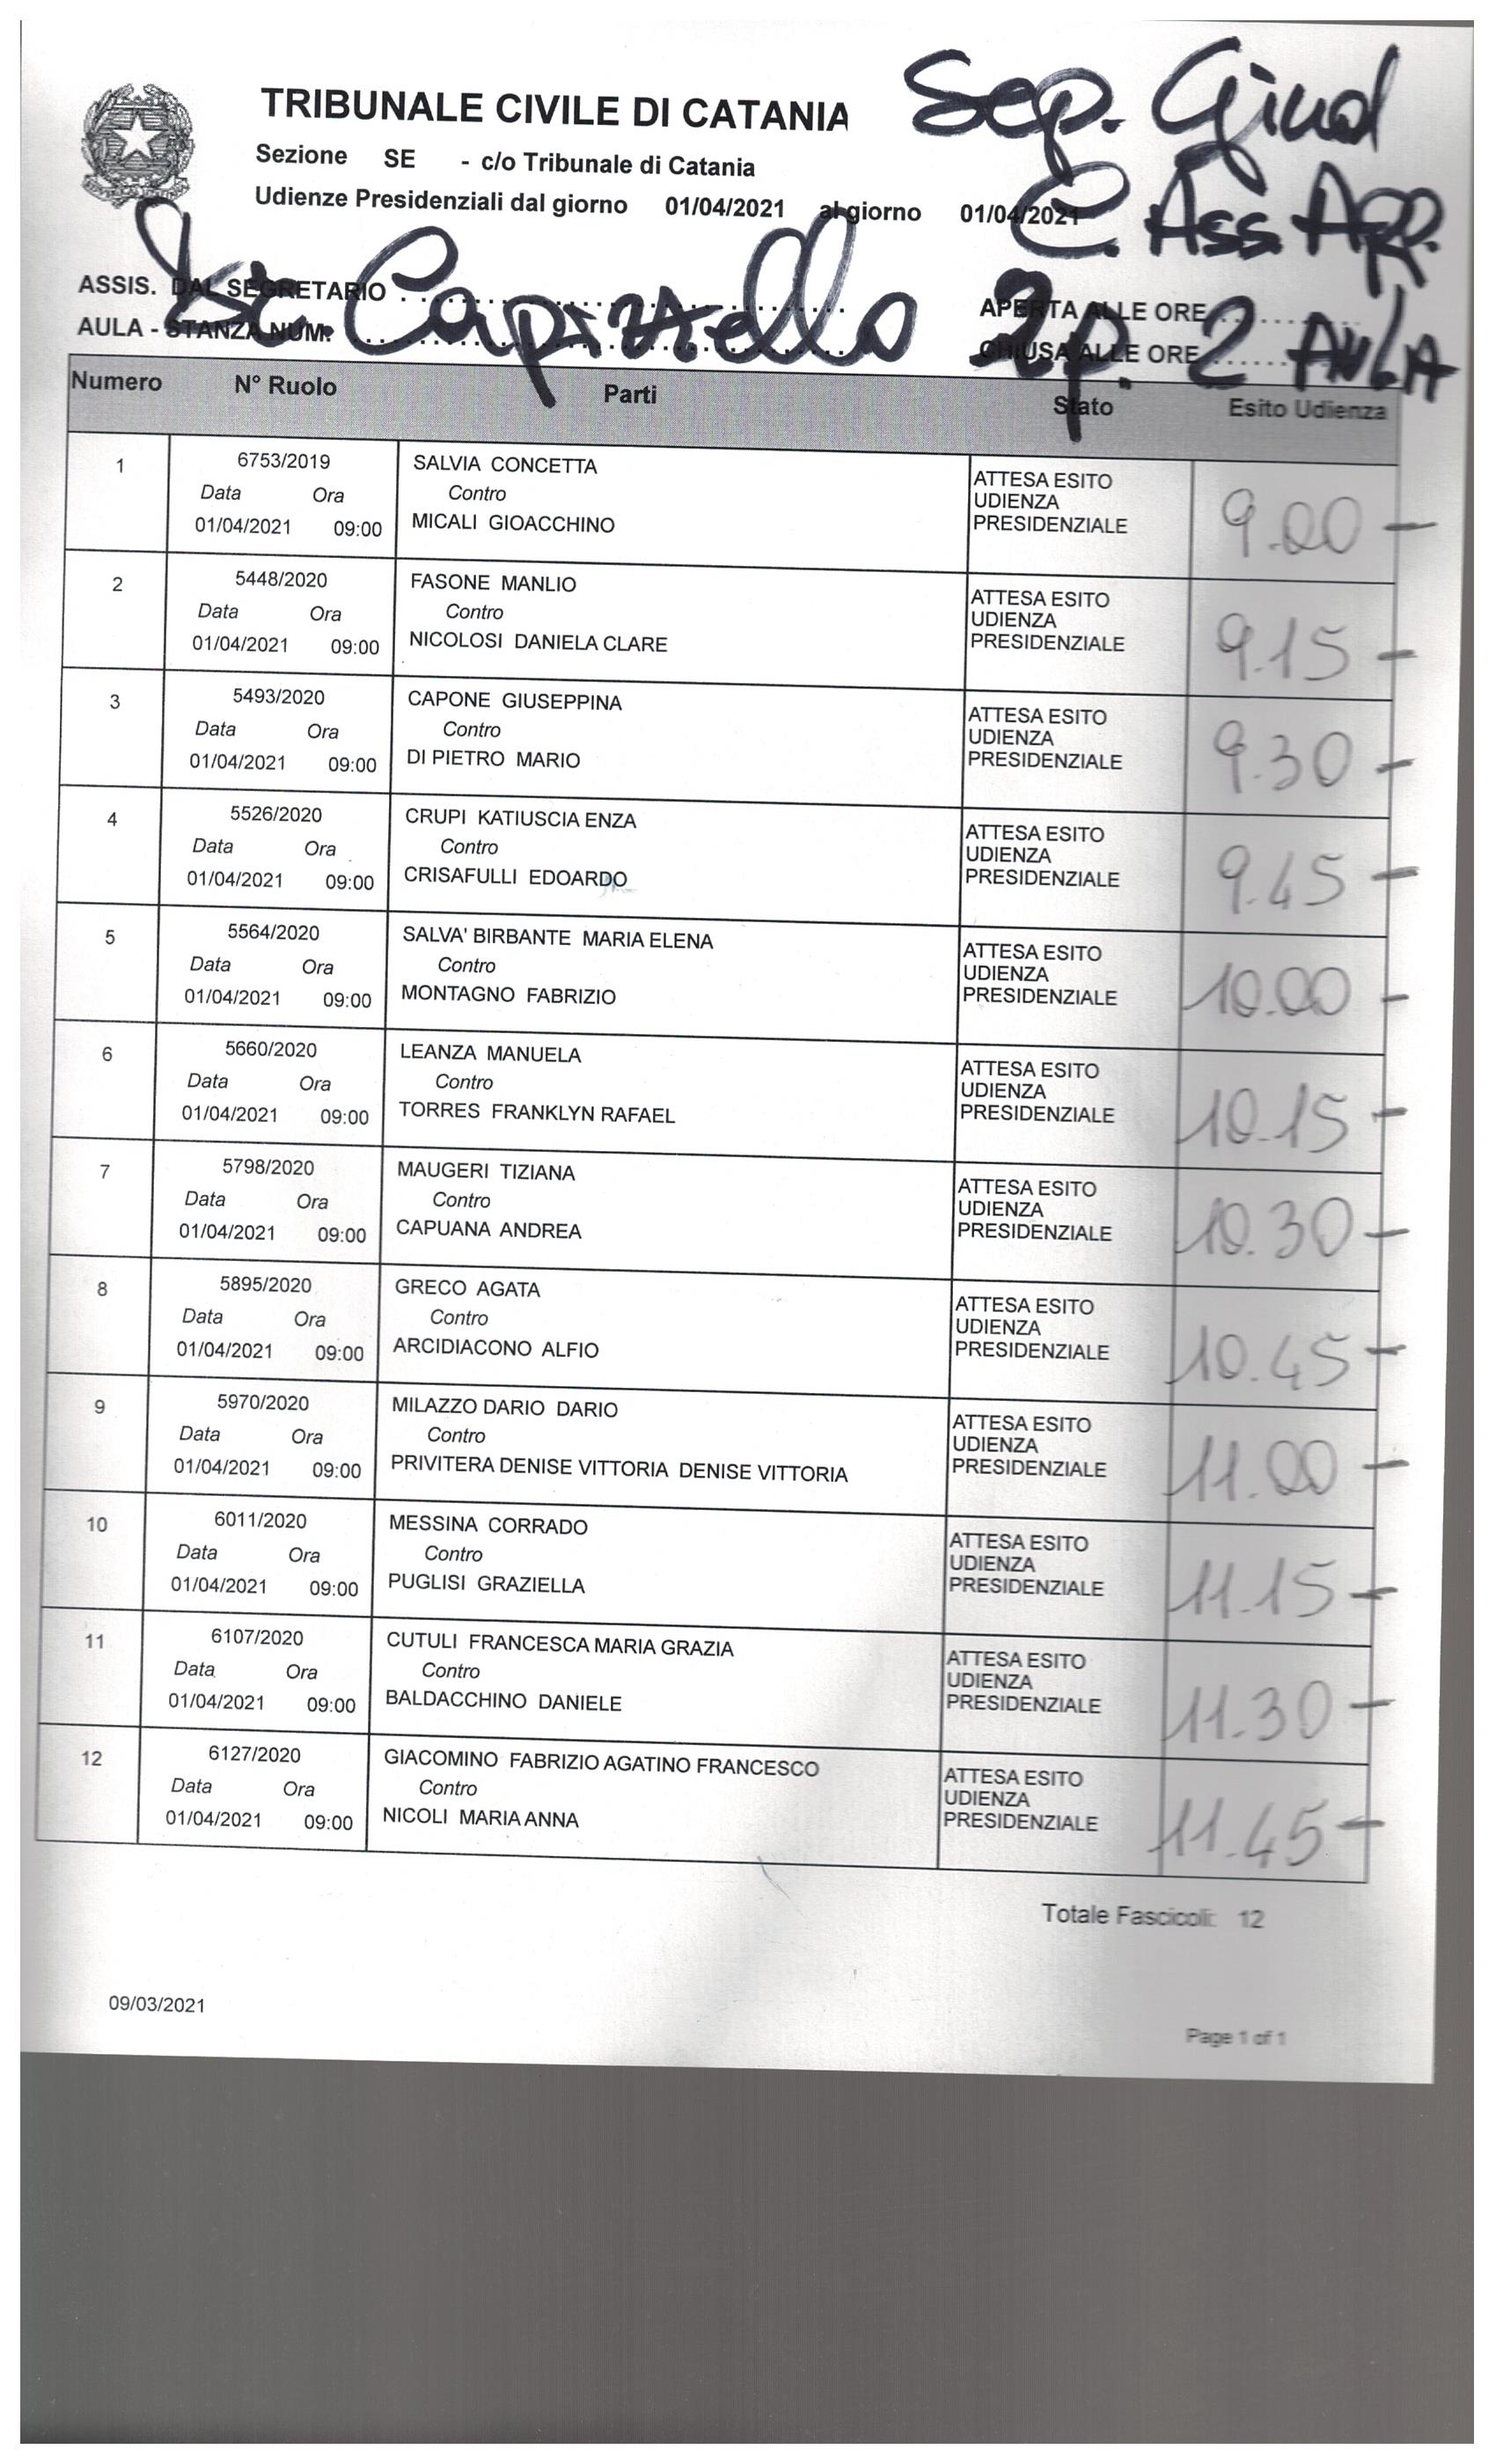 TRIBUNALE CIVILE DI CATANIA
Sep. Giud
Sezione SE - c/o Tribunale di Catania
Udienze Presidenziali dal giorno 01/04/2021 al giorno 01/04/2021
C. Ass. App.
ASSIS. DAL SEGRETARIO
APERTA ALLE ORE
AULA - STANZA NUM.
CHIUSA ALLE ORE
2p. 2 AULA
Numero N° Ruolo Parti Stato Esito Udienza
1 6753/2019 SALVIA CONCETTA ATTESA ESITO
Data Ora Contro UDIENZA
01/04/2021 09:00 MICALI GIOACCHINO PRESIDENZIALE 9.00 -
2 5448/2020 FASONE MANLIO ATTESA ESITO
Data Ora Contro UDIENZA
01/04/2021 09:00 NICOLOSI DANIELA CLARE PRESIDENZIALE 9.15 -
3 5493/2020 CAPONE GIUSEPPINA ATTESA ESITO
Data Ora Contro UDIENZA
01/04/2021 09:00 DI PIETRO MARIO PRESIDENZIALE 9.30 -
4 5526/2020 CRUPI KATIUSCIA ENZA ATTESA ESITO
Data Ora Contro UDIENZA
01/04/2021 09:00 CRISAFULLI EDOARDO PRESIDENZIALE 9.45 -
5 5564/2020 SALVA' BIRBANTE MARIA ELENA ATTESA ESITO
Data Ora Contro UDIENZA
01/04/2021 09:00 MONTAGNO FABRIZIO PRESIDENZIALE 10.00 -
6 5660/2020 LEANZA MANUELA ATTESA ESITO
Data Ora Contro UDIENZA
01/04/2021 09:00 TORRES FRANKLYN RAFAEL PRESIDENZIALE 10.15 -
7 5798/2020 MAUGERI TIZIANA ATTESA ESITO
Data Ora Contro UDIENZA
01/04/2021 09:00 CAPUANA ANDREA PRESIDENZIALE 10.30 -
8 5895/2020 GRECO AGATA ATTESA ESITO
Data Ora Contro UDIENZA
01/04/2021 09:00 ARCIDIACONO ALFIO PRESIDENZIALE 10.45 -
9 5970/2020 MILAZZO DARIO DARIO ATTESA ESITO
Data Ora Contro UDIENZA
01/04/2021 09:00 PRIVITERA DENISE VITTORIA DENISE VITTORIA PRESIDENZIALE 11.00 -
10 6011/2020 MESSINA CORRADO ATTESA ESITO
Data Ora Contro UDIENZA
01/04/2021 09:00 PUGLISI GRAZIELLA PRESIDENZIALE 11.15 -
11 6107/2020 CUTULI FRANCESCA MARIA GRAZIA ATTESA ESITO
Data Ora Contro UDIENZA
01/04/2021 09:00 BALDACCHINO DANIELE PRESIDENZIALE 11.30 -
12 6127/2020 GIACOMINO FABRIZIO AGATINO FRANCESCO ATTESA ESITO
Data Ora Contro UDIENZA
01/04/2021 09:00 NICOLI MARIA ANNA PRESIDENZIALE 11.45 -
Totale Fascicoli: 12
09/03/2021
Page 1 of 1